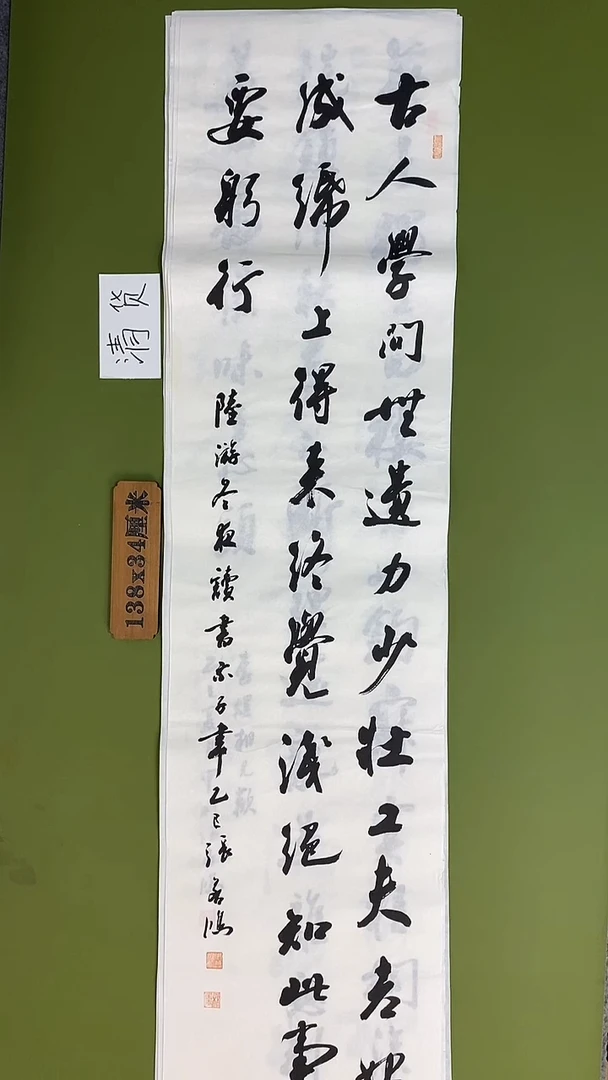 古人學問無遺力少壯工夫老始
成紙上得來終覺淺絕知此事
要躬行
陸游冬夜讀書示子聿乙巳張
清货
138x34厘米